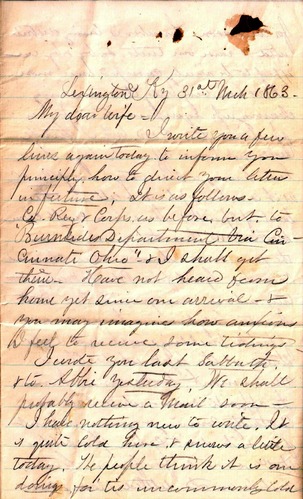 Lexington Ky 31st Mch 1863.
My dear Wife –
I write you a few
lines again today to inform you
principly how to direct your letter
in future, It is as follows.
Co. Reg & Corps. as before, but to
"Burnsides Department Via Cin-
cinnate Ohio" & I shall get
them. Have not heard from
home yet since our arrival – &
you may imagine how anxious
I feel to receive some tidings.
I wrote you last Sabbath,
& to Attie yesterday. We shall
probably receive a Mail soon –
I have nothing new to write. It
is quite cold here, & snows a little
today. The people think it is our
doing for tis uncommonly cold